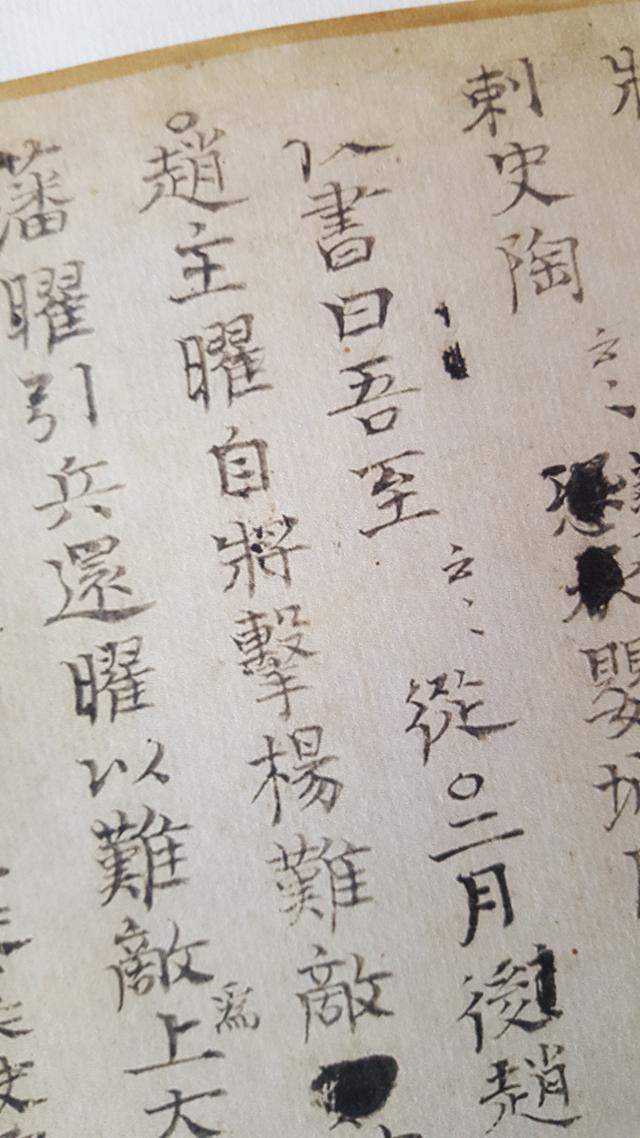 刺史陶云〻嬰城
以書曰吾至云〻從○二月後趙
○趙主曜自將擊楊難敵
藩曜引兵還曜以難敵爲上大